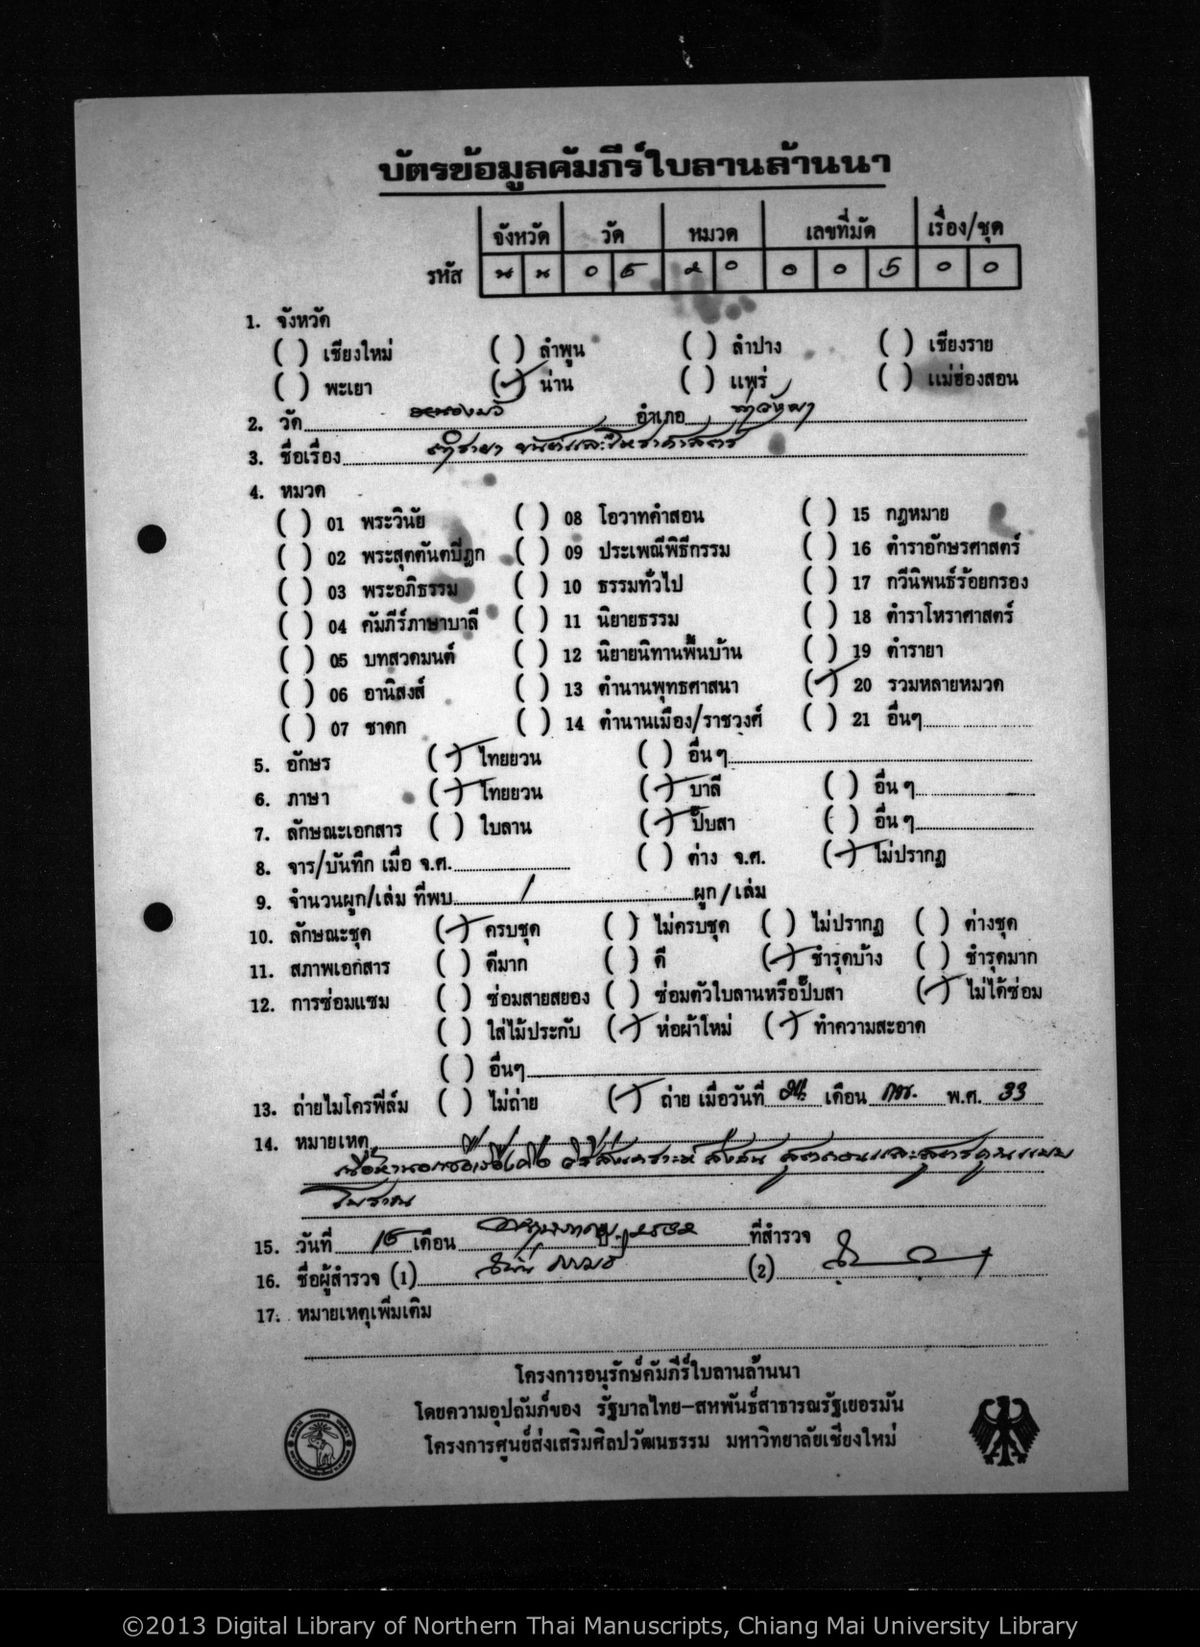 บัตรข้อมูลคัมภีร์ใบลานล้านนา
จังหวัด วัด หมวด เลขที่มัด เรื่อง/ชุด
รหัส น น 0 5 2 0 0 0 5 0 0
1. จังหวัด
( ) เชียงใหม่ ( ) ลำพูน ( ) ลำปาง ( ) เชียงราย
( ) พะเยา (✓) น่าน ( ) แพร่ ( ) แม่ฮ่องสอน
2. วัด หนองบัว อำเภอ ท่าวังผา
3. ชื่อเรื่อง ตำรายา ขันต์และโหราศาสตร์
4. หมวด
( ) 01 พระวินัย ( ) 08 โอวาทคำสอน ( ) 15 กฎหมาย
( ) 02 พระสุตตันตปิฎก ( ) 09 ประเพณีพิธีกรรม ( ) 16 ตำราอักษรศาสตร์
( ) 03 พระอภิธรรม ( ) 10 ธรรมทั่วไป ( ) 17 กวีนิพนธ์ร้อยกรอง
( ) 04 คัมภีร์ภาษาบาลี ( ) 11 นิยายธรรม ( ) 18 ตำราโหราศาสตร์
( ) 05 บทสวดมนต์ ( ) 12 นิยายนิทานพื้นบ้าน ( ) 19 ตำรายา
( ) 06 อานิสงส์ ( ) 13 ตำนานพุทธศาสนา (✓) 20 รวมหลายหมวด
( ) 07 ชาดก ( ) 14 ตำนานเมือง/ราชวงศ์ ( ) 21 อื่นๆ
5. อักษร (✓) ไทยยวน ( ) อื่นๆ
6. ภาษา (✓) ไทยยวน (✓) บาลี ( ) อื่นๆ
7. ลักษณะเอกสาร ( ) ใบลาน (✓) ปั๊บสา ( ) อื่นๆ
8. จาร/บันทึก เมื่อ จ.ศ. ( ) ต่าง จ.ศ. (✓) ไม่ปรากฏ
9. จำนวนผูก/เล่ม ที่พบ 1 ผูก/เล่ม
10. ลักษณะชุด (✓) ครบชุด ( ) ไม่ครบชุด ( ) ไม่ปรากฏ ( ) ต่างชุด
11. สภาพเอกสาร ( ) ดีมาก ( ) ดี (✓) ชำรุดบ้าง ( ) ชำรุดมาก
12. การซ่อมแซม ( ) ซ่อมสายสยอง ( ) ซ่อมตัวใบลานหรือปั๊บสา (✓) ไม่ได้ซ่อม
( ) ใส่ไม้ประกับ (✓) ห่อผ้าใหม่ (✓) ทำความสะอาด
( ) อื่นๆ
13. ถ่ายไมโครฟิล์ม ( ) ไม่ถ่าย (✓) ถ่าย เมื่อวันที่ เดือน กพ. พ.ศ. 33
14. หมายเหตุ
โบราณ
15. วันที่ 15 เดือน พฤษภาคม 2532 ที่สำรวจ
16. ชื่อผู้สำรวจ (1) (2)
17. หมายเหตุเพิ่มเติม
โครงการอนุรักษ์คัมภีร์ใบลานล้านนา
โดยความอุปถัมภ์ของ รัฐบาลไทย-สหพันธ์สาธารณรัฐเยอรมัน
โครงการศูนย์ส่งเสริมศิลปวัฒนธรรม มหาวิทยาลัยเชียงใหม่
©2013 Digital Library of Northern Thai Manuscripts, Chiang Mai University Library